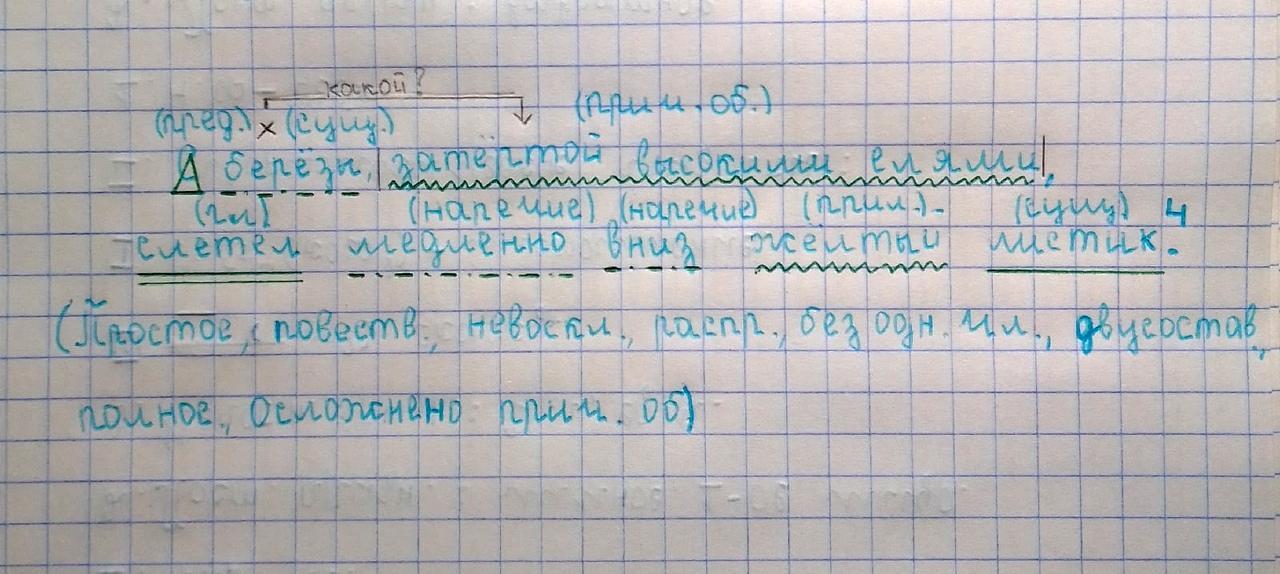 какой?
(пред.) х (сущ.) (прич. об.)
берёзы, затёртой высокими елями,
(гл) (наречие) (наречие) (прил.) (сущ) 4
слетел медленно вниз жёлтый листик.
(Простое, повеств., невоскл., распр., без одн. чл., двусостав.,
полное, осложнено прич. об)